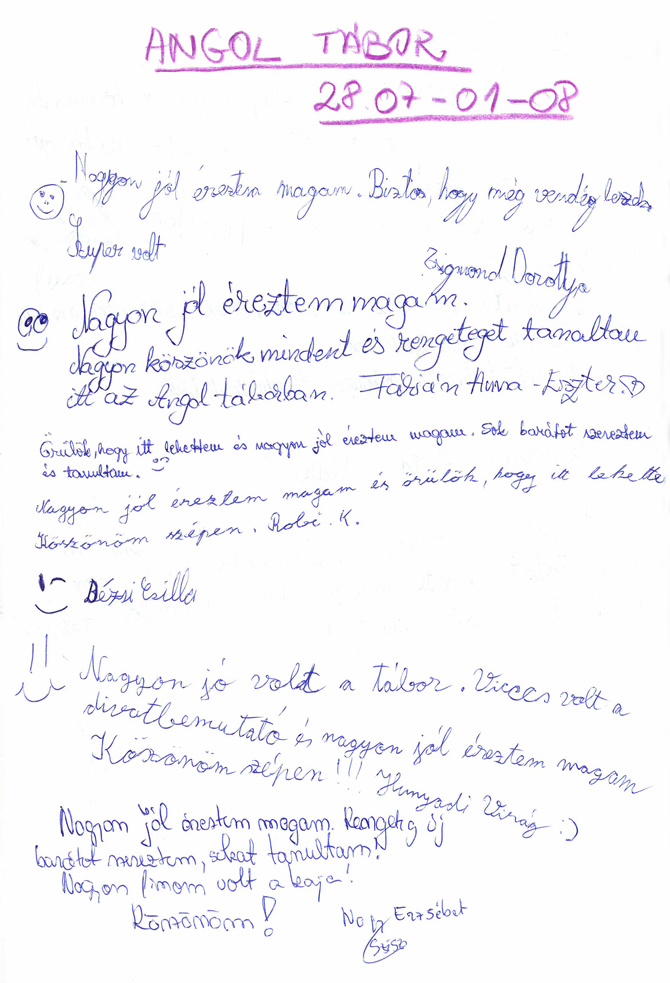 ANGOL TÁBOR
28.07-01-08
Nagyon jól éreztem magam. Biztos, hogy még vendég leszek.
Szuper volt
Zsigmond Dorottya
Nagyon jól éreztem magam.
Nagyon köszönök mindent és rengeteget tanultam
itt az Angol táborban. Fábián Anna-Eszter :D
Örülök, hogy itt lehettem és nagyon jól éreztem magam. Sok barátot szereztem
és tanultam.
Nagyon jól éreztem magam és örülök, hogy itt lehette
Köszönöm szépen. Robi K.
Dézsi Csilla
Nagyon jó volt a tábor. Vicces volt a
divatbemutató és nagyon jól éreztem magam
Köszönöm szépen!!! Hunyadi Virág :)
Nagyon jól éreztem magam. Reangeteg új
barátot szereztem, sokat tanultam!
Nagyon finom volt a kaja!
Köszönöm! Nagy Erzsébet
Szisz